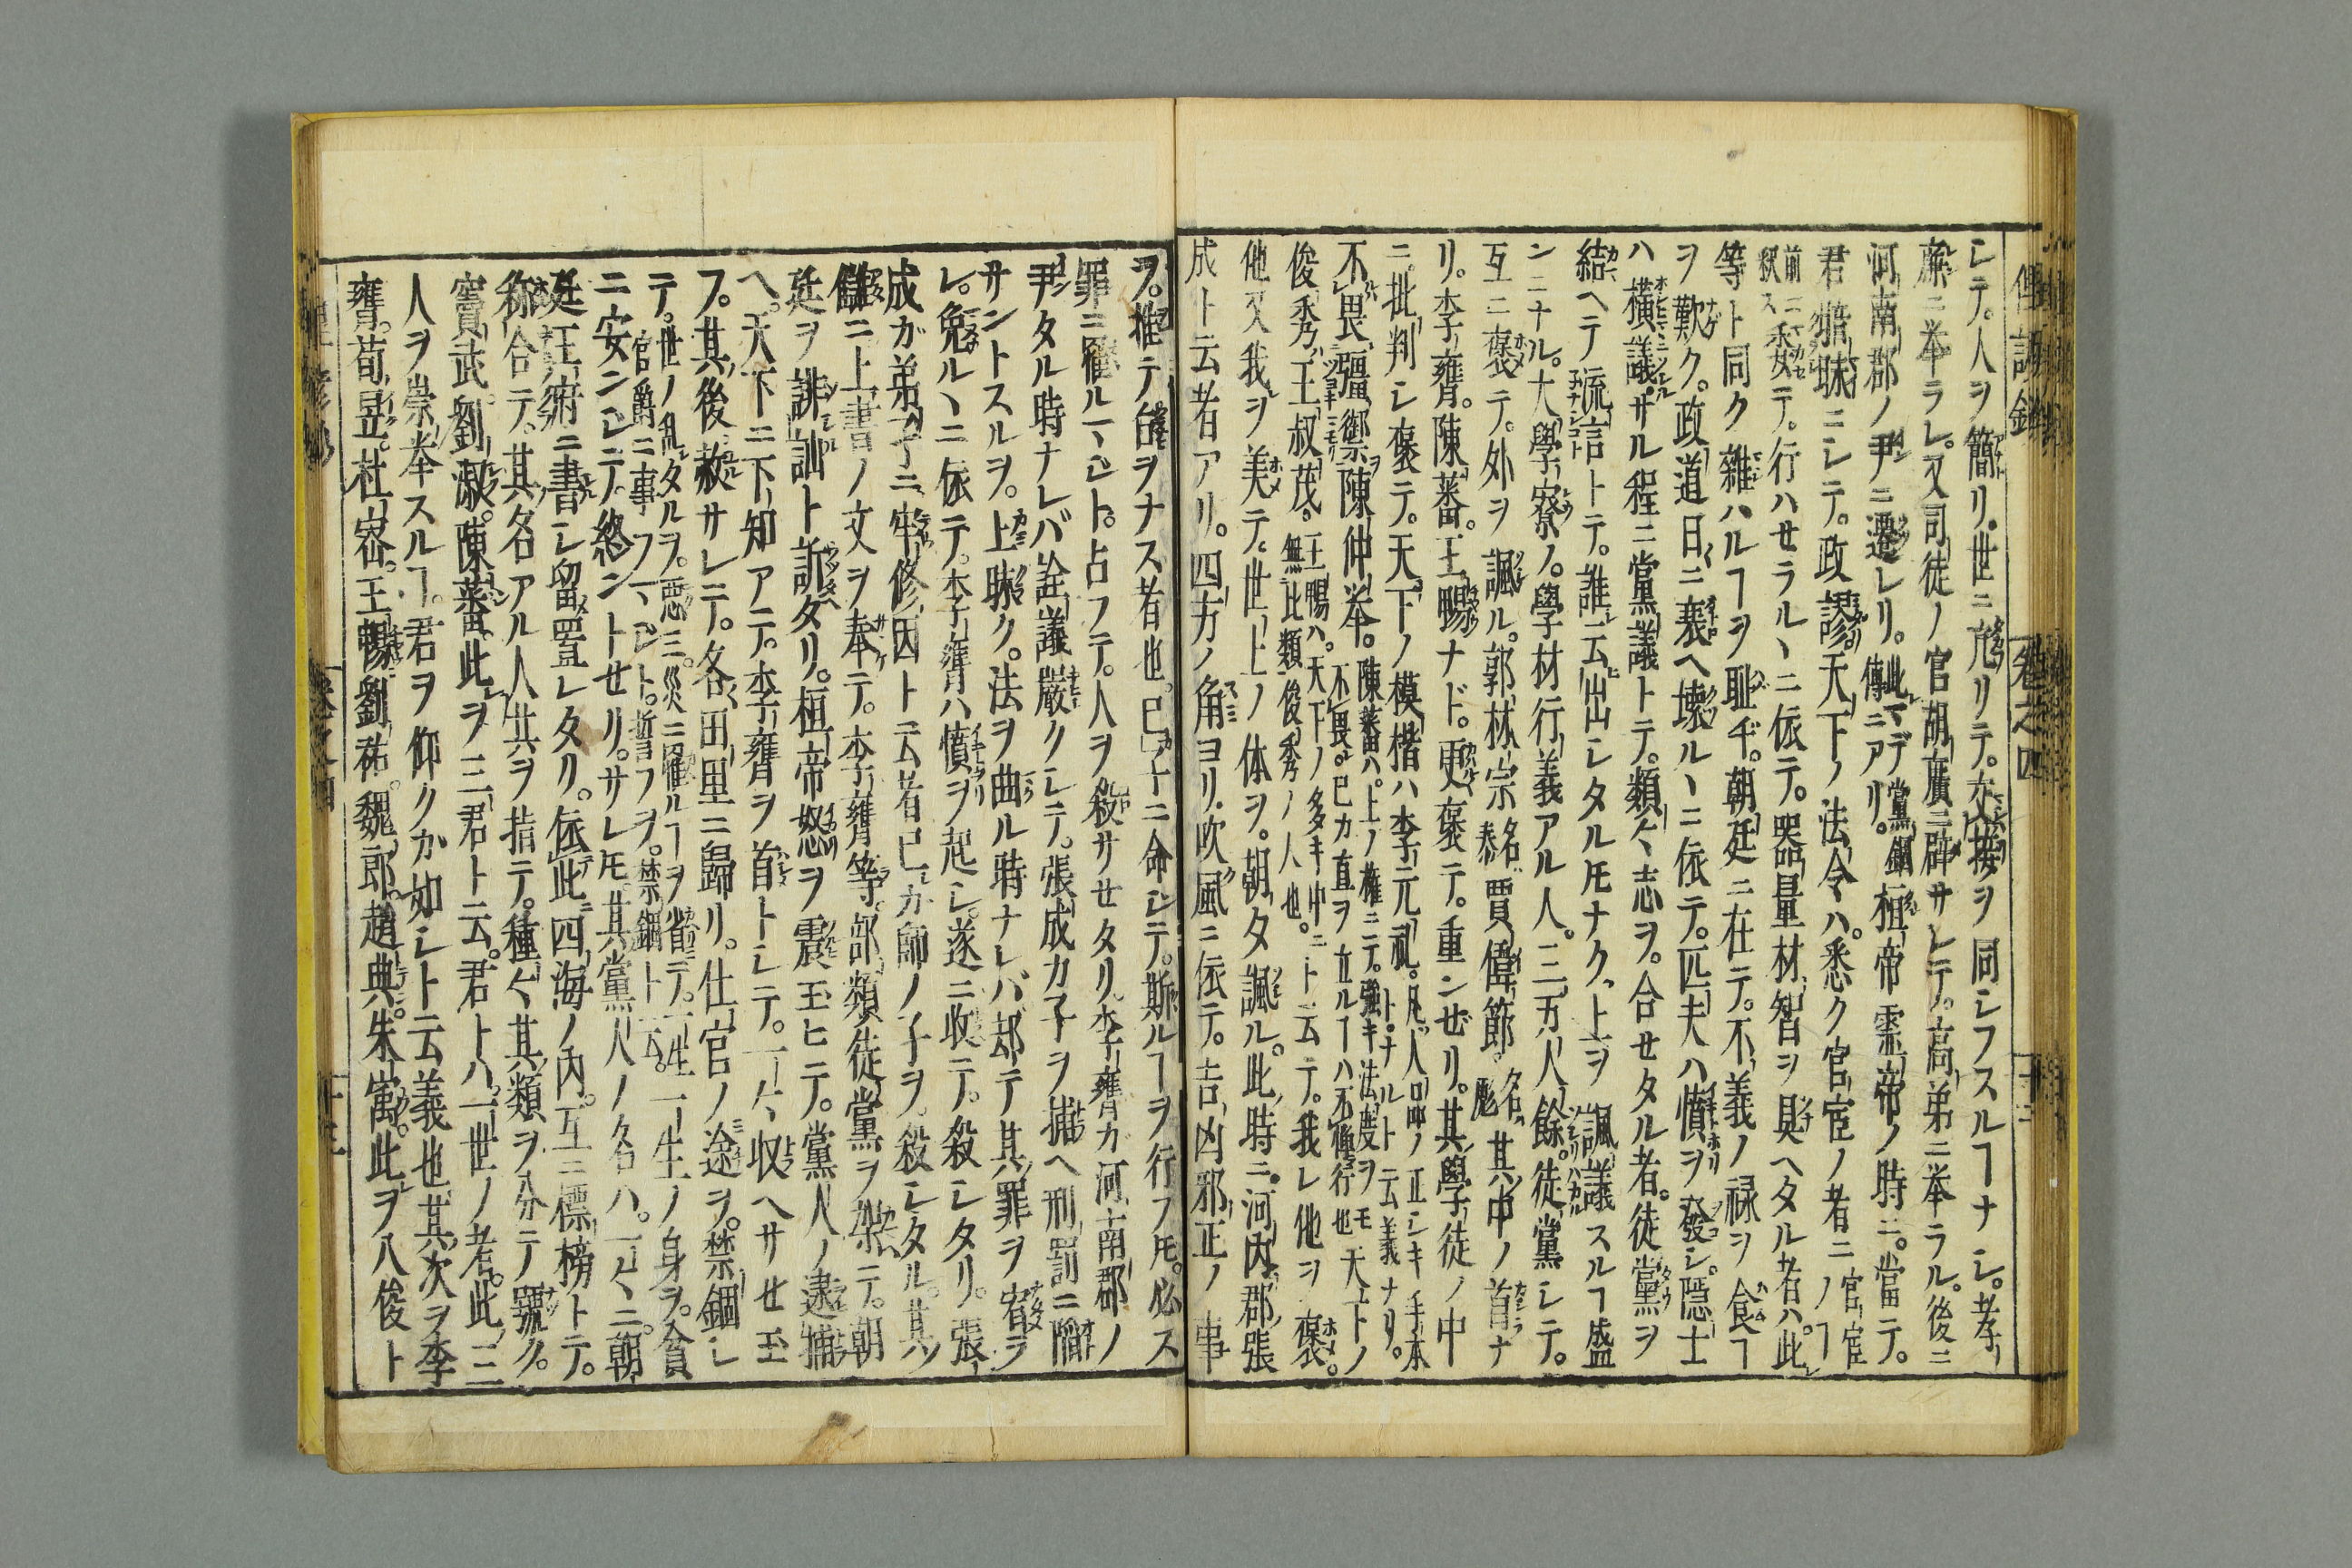 シテ。人ヲ簡リ。世ニ亢リテ。交接ヲ同シフスルヿナシ。孝
廉ニ挙ラレ。又司徒ノ官胡廣ニ辟サレテ。高弟ニ挙ラル。後ニ
河南郡ノ尹ニ遷レリ。此マデ黨錮傳ニアリ。桓帝霊帝ノ時ニ。當テ。
君暗昧ニシテ。政謬。天下ノ法令ハ。悉ク官宦ノ者ニ官宦ノヿ
前ニ釈ス委テ。行ハせラルヽニ依テ。器量材智ヲ具ヘタル者ハ。此
等ト同ク雜ハルヿヲ耻ヂ。朝廷ニ在テ。不義ノ禄ヲ食ヿ
ヲ歎ク。政道日ニ衰ヘ壊ルヽニ依テ。匹夫ハ憤ヲ發シ。隱士
ハ横議。せザル程ニ黨議トテ。類々志ヲ。合せタル者。徒黨ヲ
結ヘテ流言トテ。誰云出シタルトモナク。上ヲ諷議スルヿ盛
ンニナル。大學寮ノ。學材行義アル人。三万人餘。徒黨シテ。
互ニ褒テ。外ヲ諷ル。郭林宗名泰賈偉節名彪其中ノ首ナ
リ。李膺。陳蕃。王暢ナド。更褒テ。重ンせリ。其學徒ノ中
ニ。批判シ褒テ。天下ノ模楷ハ李元礼。凡人品ノ正シキ手本トナルト云義ナリ。
不畏彊禦陳仲挙。陳蕃ハ。上ノ權ニテ。強キ法度ヲモ不畏。已カ直ヲ立ルヿハ不憚行也天下ノ
俊秀王叔茂。王暢ハ。天下ノ多キ中ニ無此類俊秀ノ人也。ト云テ。我レ他ヲ褒。
他又我ヲ美テ。世上ノ体ヲ。朝夕諷ル。此時ニ。河内郡張
成ト云者アリ。四方ノ角ヨリ。吹風ニ依テ。吉凶邪正ノ事
ヲ。推テ。占ヲナス者也。已子ニ命シテ。斯ルヿヲ行フトモ。必ス
罪ニ罹ルヿシト。占フテ。人ヲ殺サせタリ。李膺ガ河南郡ノ
尹タル時ナレバ詮議嚴クシテ。張成カ子ヲ捕ヘ刑罰ニ陷
サントスルヲ。上昧ク。法ヲ曲ル時ナレバ却テ其罪ヲ宥ラ
レ。免ルヽニ依テ。李膺ハ憤ヲ起シ。遂ニ收テ。殺シタリ。張
成ガ弟子ニ牢修因ト云者已カ師ノ子ヲ。殺シタル。其
讎ニ上書ノ文ヲ奉テ。李膺等。部類徒黨ヲ架テ。朝
廷ヲ誹訕ト訴タリ。桓帝怒ヲ震玉ヒテ。黨人ノ逮捕
ヘ。天下ニ下知アテ。李膺ヲ首トシテ。一々收ヘサせ玉
フ。其後赦サレテ。各田里ニ歸リ。仕官ノ途ヲ。禁錮シ
テ。世ノ乱タルヲ。悪三。災ニ罹ルヿヲ省テ。一生官爵ニ事フマシト。誓フヲ。禁錮ト云。一生ノ身ヲ。貪
ニ安ンシテ。終ントせリ。サレトモ其黨人ノ名ハ。一々ニ。朝
廷王府ニ書シ留置レタリ。依此四海ノ内。互ニ標榜トテ。
称合テ。其名アル人共ヲ指テ。種々其類ヲ分テノ號ク。
竇武。劉淑。陳蕃。此ヲ三君ト云。君トハ。一世ノ者。此三
人ヲ崇奉スルヿ。君ヲ仰クカ如シト云義也。其次ヲ李
膺。荀昱。杜密。王暢。劉祐。魏郎。趙典。朱㝢。此ヲ八俊ト
卷之四